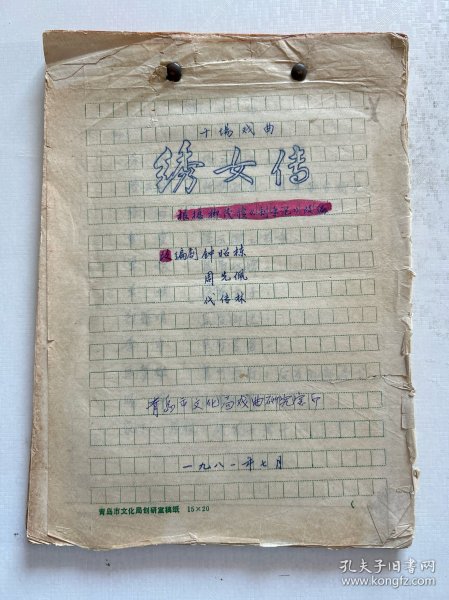 十场戏曲
绣女传
根据柳
改编剧 钟昭栋
周光佩
代信林
青岛市文化局戏曲研究室
一九八一年七月
青岛市文化局创研室稿纸 15×20
孔夫子旧书网
www.kongfz.com